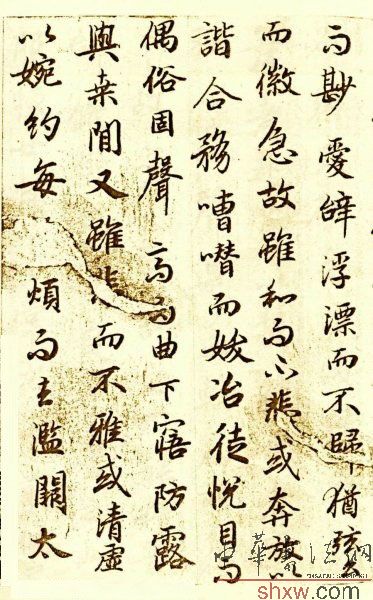 而尠愛辭浮漂而不歸猶弦么
而徽急故雖和而不悲或奔放以
諧合務嘈囋而妖冶徒悅目而
偶俗固聲高而曲下寤防露
與桒間又雖悲而不雅或清虛
以婉約每煩而去濫闕太
中華書法網
shxw.com